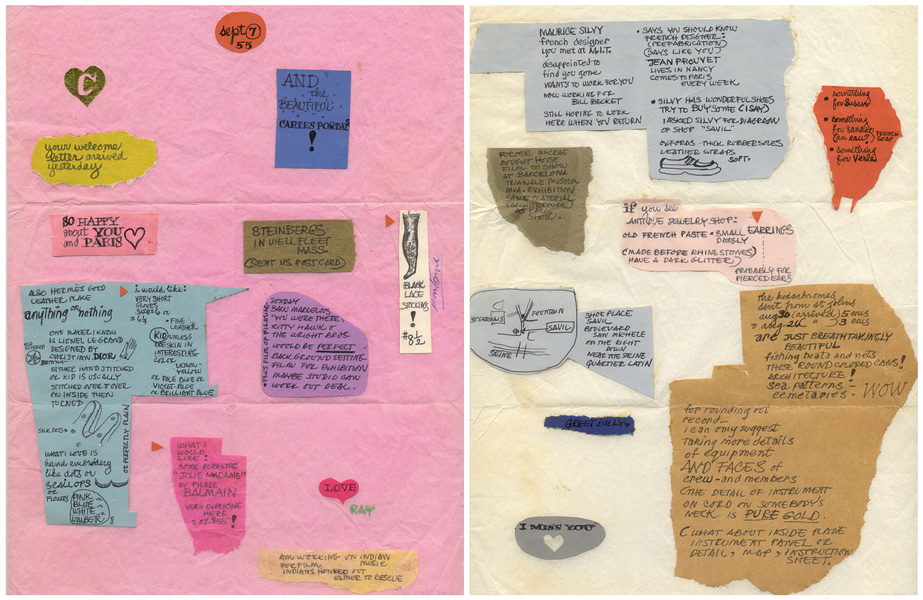 sept 7
55
C
AND
the
BEAUTIFUL
CARTES POSTALS
!
your welcome
letter arrived
yesterday
SO HAPPY
about YOU
and PARIS
STEINBERGS
IN WELLFLEET
MASS.
(SENT US POST CARD)
BLACK
LACE
STOCKINGS
!
8½
ALSO HERMES GOOD
LEATHER PLACE
anything or nothing
ONE MAKER I KNOW
IS LIONEL LE GRAND
DESIGNED BY
CHRISTIAN DIOR
EITHER HAND STITCHED
OR KID IS USUALLY
STITCHED OVER + OVER
ON INSIDE THEN
TURNED
SILK DOTS
OR PERFECTLY PLAIN
WHAT I LOVE IS
hand embroidery
like dots or
SCALLOPS
OR
FLOWERS
PINK
BLUE
WHITE
i would like:
VERY SHORT
GLOVES
SIZE 6 OR
6¼
FINE
LEATHER
KID UNLESS
PIGSKIN IN
INTERESTING
COLOR
LEMON
YELLOW
OR PALE BLUE OR
VIOLET-BLUE
OR BRILLIANT BLUE
SUNDAY
SAW MARVELOUS
"YOU WERE THERE"
KITTY HAWK +
THE WRIGHT BROS.
WOULD BE PERFECT
BACKGROUND SETTING
FILM FOR EXHIBITION
MAYBE STUDIO COW
WORK OUT DEAL.
WHAT I
WOULD
LIKE:
SOME PERFUME
"JOLIE MADAME"
BY PIERRE
BALMAIN
VERY EXPENSIVE
HERE
1 oz. $55 !
LOVE
RAY
AM WORKING ON INDIAN
MUSIC
FOR FILM
INDIANS HONKED OUT
ELMER TO RESCUE
MAURICE SILVY
french designer
you met at M.I.T.
disappointed to
find you gone
WANTS TO WORK FOR YOU
NOW WORKING FOR
BILL BECKET
STILL HOPING TO WORK
HERE WHEN YOU RETURN
• SAYS YOU SHOULD KNOW
FRENCH DESIGNER:
(PREFABRICATION)
(SAYS LIKE YOU)
JEAN PROUVET
LIVES IN NANCY
COMES TO PARIS
EVERY WEEK
• SILVY HAS WONDERFUL SHOES
TRY TO BUY SOME (I SAY)
I ASKED SILVY FOR DIAGRAM
OF SHOP "SAVIL"
OXFORDS - THICK RUBBER SOLES
LEATHER STRAPS
SOFT-
• something
for Susan
• something
for Sandro
(an eau?) FRENCH SOAP
• something
for Vera
BOUGHT HOUSE
FILM TO SHOW
AT BARCELONA
M.M.A. EXHIBITION
SAME MATERIAL
(ARCHITECTURE)
SHOW.
if you see
ANTIQUE JEWELRY SHOP:
OLD FRENCH PASTE • SMALL EARRINGS
DANGLY
(MADE BEFORE RHINESTONES)
HAVE A DARK GLITTER)
PROBABLY FOR
PIERCED EARS
FOUNTAIN
SAVIL
SEINE
SHOE PLACE
SAVIL
BOULEVARD
SAN MICHELE
ON THE RIGHT
DOWN
NEAR THE SEINE
QUARTIER LATIN
GREET BILLY
the kodachromes
sent from st johns
aug 30 (arrived) 5 mins
+ aug 24 " ) 3 mins
are JUST BREATHTAKINGLY
BEAUTIFUL
fishing boats and nets
THOSE 'ROUND COLORED CANS!
ARCHITECTURE!
sea patterns -
cemetaries. WOW
for rounding out
record—
i can only suggest
taking more details
of equipment
AND FACES of
crew-and members
(THE DETAIL OF INSTRUMENT
ON CORD ON SOMEBODY'S
NECK IS PURE GOLD.
(WHAT ABOUT INSIDE PLANE
INSTRUMENT PANEL OR
DETAIL, MAP, INSTRUCTION
SHEET.
I MISS YOU